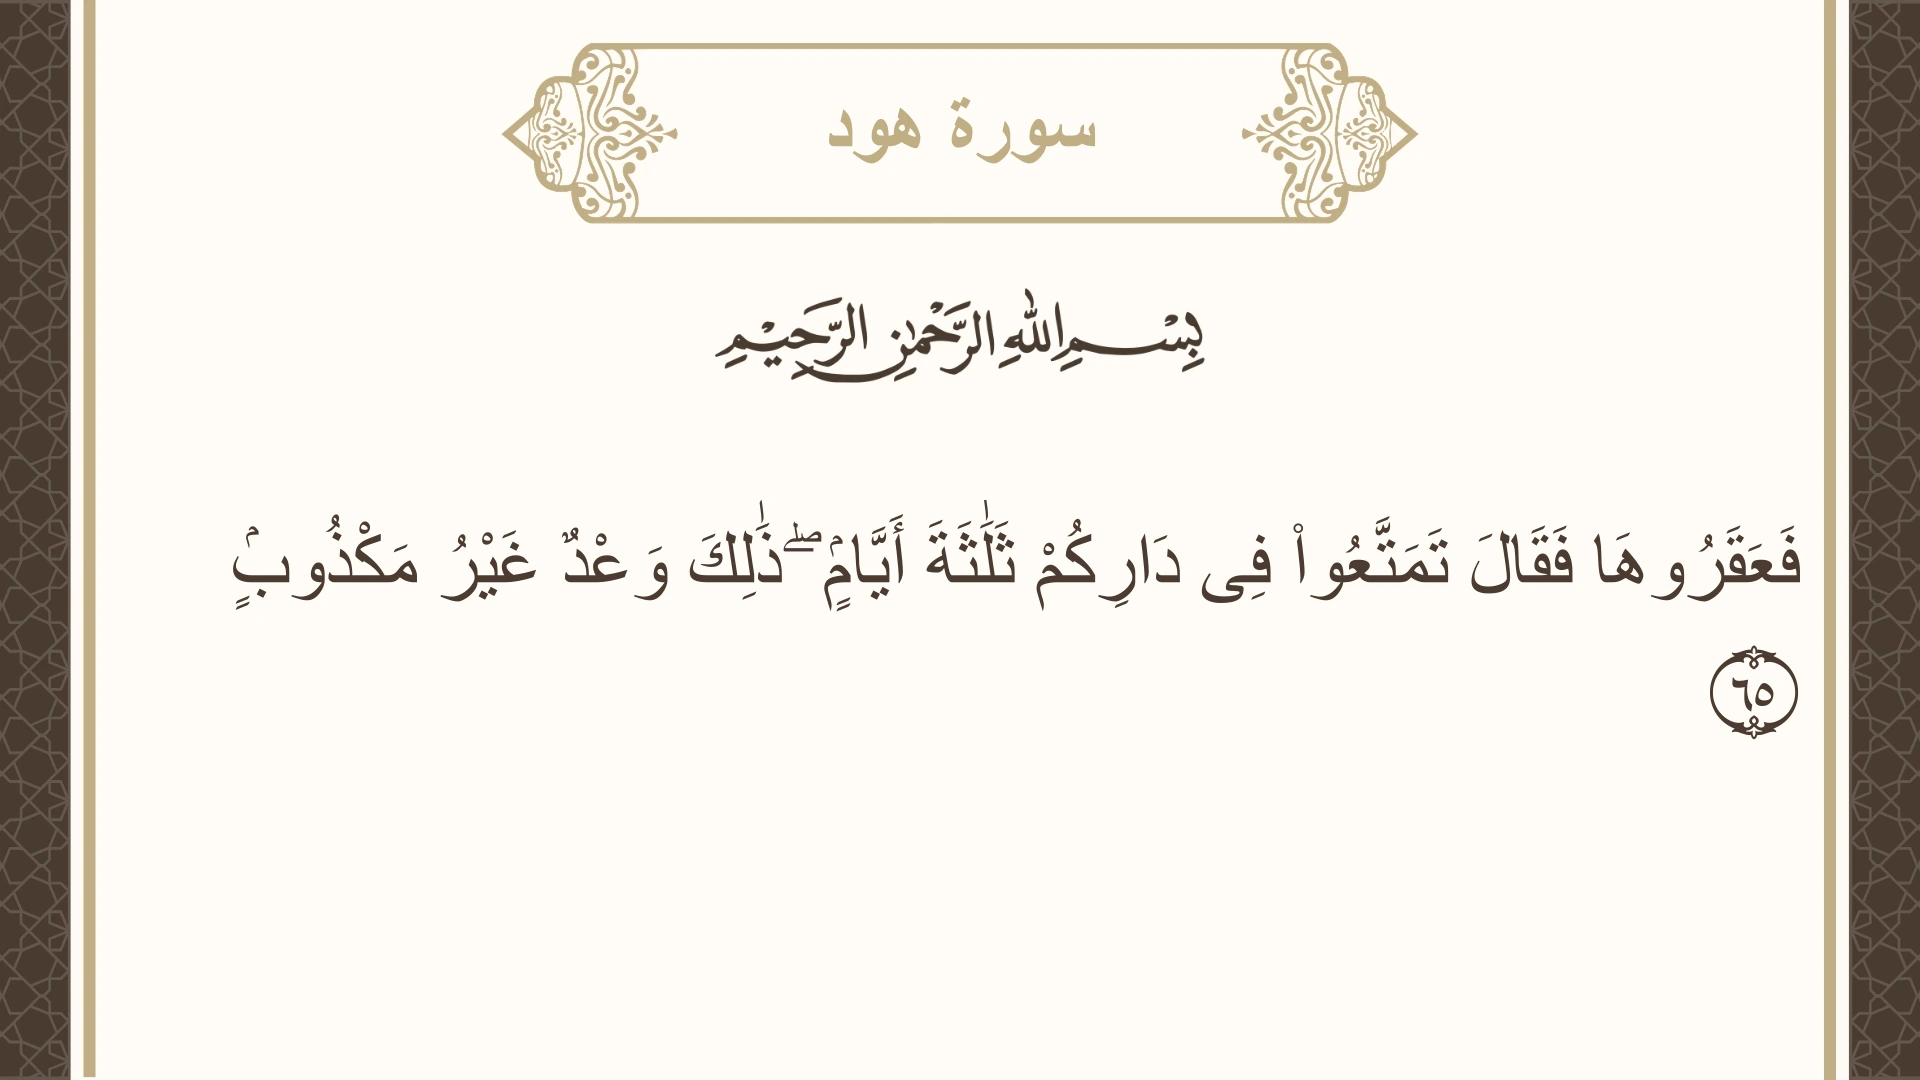 سورة هود
بِسْمِ اللهِ الرَّحْمٰنِ الرَّحِيْمِ
فَعَقَرُوهَا فَقَالَ تَمَتَّعُوا۟ فِى دَارِكُمْ ثَلَـٰثَةَ أَيَّامٍۢ ۖ ذَٰلِكَ وَعْدٌ غَيْرُ مَكْذُوبٍۢ
٦٥